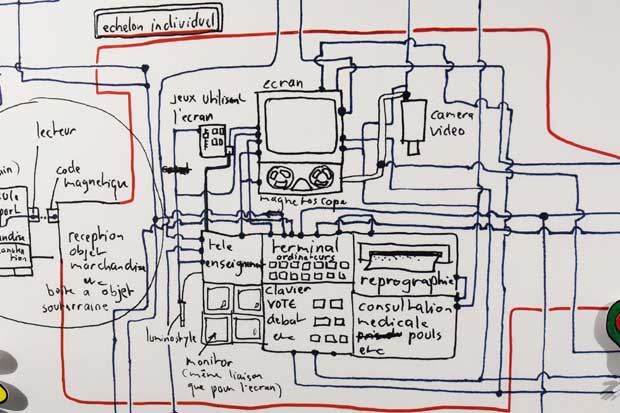 echelon individuel
ecran
jeux utilisant
l'ecran
camera
video
lecteur
code
magnetique
magnetoscope
reception
objet
marchandise
etc
boite a objet
souterraine
tele
enseignement
terminal
ordinateurs
reprographie
clavier
vote
debat
etc
consultation
medicale
pouls
etc
luminostyle
monitor
(même liaison
que pour l'ecran)